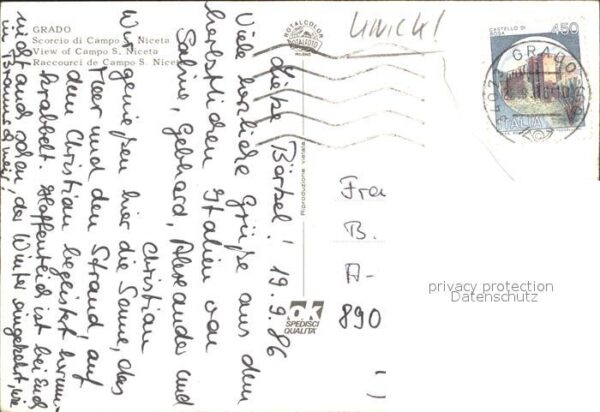 GRADO
Scorcio di Campo S. Niceta
View of Campo S. Niceta
Raccourci de Campo S. Niceta
ROTALCOLOR
ROTALFOTO
MILANO
CASTELLO DI
ROSA
450
GRADO
ITALIA
Liebe Bärbel! 19.9.86
Viele herzliche Grüße aus dem
herbstlichen Italien von
Sabine, Gebhard, Alexander und
Christian
Wir genießen hier die Sonne, das
Meer und den Strand, auf
dem Christian begeistert herum-
krabbelt. Hoffentlich ist bei Euch
nicht auch schon der Winter eingekehrt, wie
in
Riproduzione vietata
ok
SPEDISCI
QUALITA'
Frau
B.
A-
890
privacy protection
Datenschutz